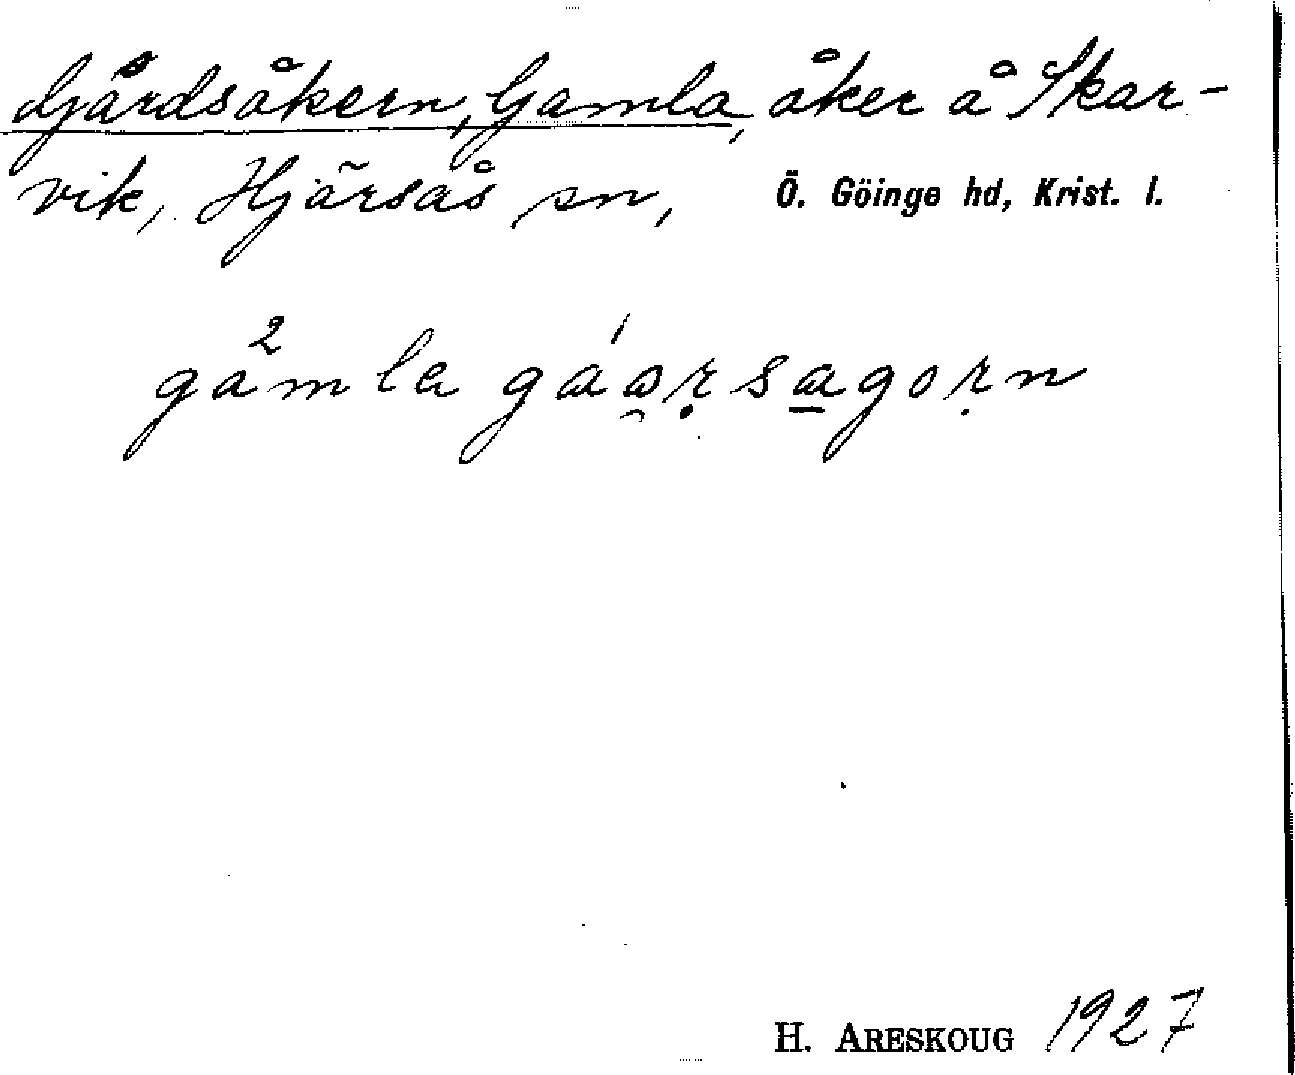 Gårdsåkern, Gamla, åker å Skar-
vik, Hjärsås sn, Ö. Göinge hd, Krist. l.
gamla gáɷ̯ṛsa̱goṛn
H. ARESKOUG 1927